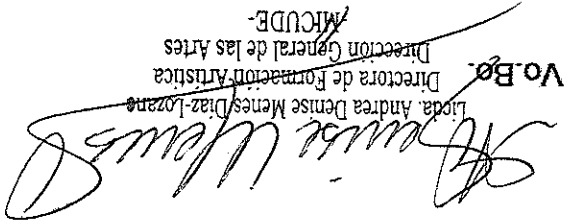 Licda. Andrea Denise Menes Díaz-Lozano
Directora de Formación Artística
Vo.Bo. Dirección General de las Artes
-MICUDE-